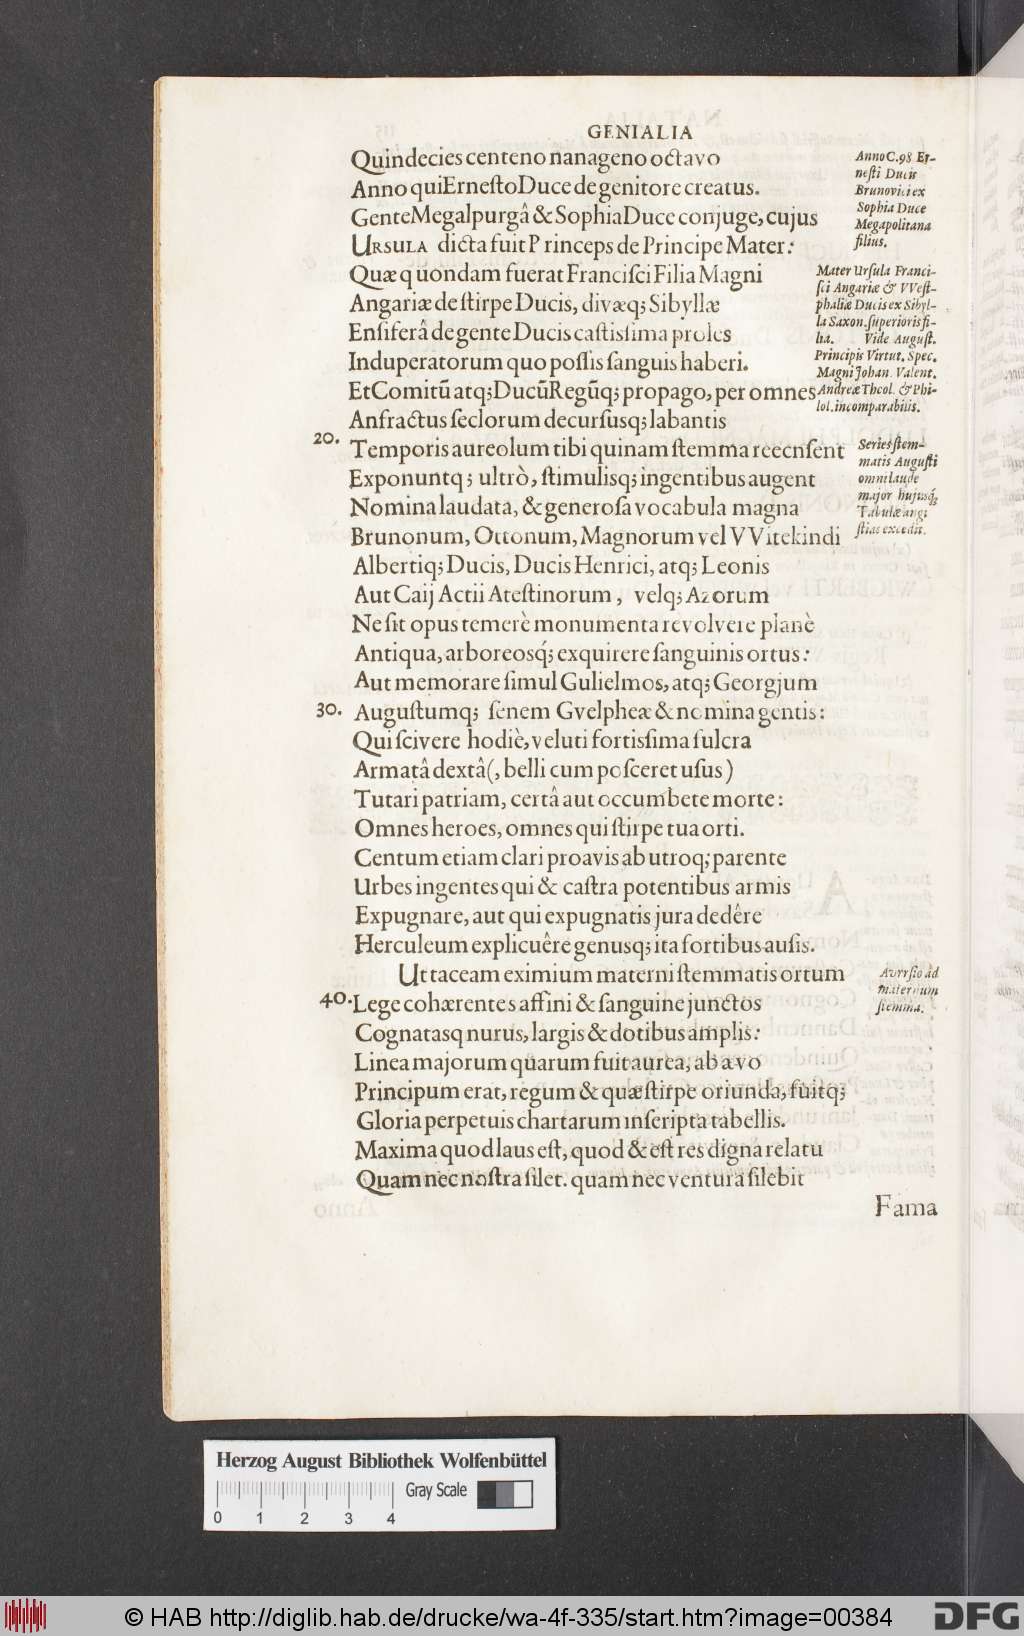 GENIALIA
Quindecies centeno nanageno octavo
Anno qui Ernesto Duce de genitore creatus.
Gente Megalpurgâ & Sophia Duce conjuge, cujus
URSULA dicta fuit Princeps de Principe Mater:
Quæ quondam fuerat Francisci Filia Magni
Angariæ de stirpe Ducis, divæq; Sibyllæ
Ensiferâ de gente Ducis castissima proles
Induperatorum quo possis sanguis haberi.
Et Comitũ atq; Ducũ Regũq; propago, per omnes
Anfractus seclorum decursusq; labantis
20. Temporis aureolum tibi quinam stemma recensent
Exponuntq; ultrò, stimulisq; ingentibus augent
Nomina laudata, & generosa vocabula magna
Brunonum, Ottonum, Magnorum vel VVitekindi
Albertiq; Ducis, Ducis Henrici, atq; Leonis
Aut Caij Actii Atestinorum, velq; Azorum
Ne sit opus temerè monumenta revolvere planè
Antiqua, arboreosq́; exquirere sanguinis ortus:
Aut memorare simul Gulielmos, atq; Georgjum
30. Augustumq; senem Gvelpheæ & nomina gentis:
Qui scivere hodiè, veluti fortissima fulcra
Armatâ dextâ (, belli cum posceret usus)
Tutari patriam, certâ aut occumbete morte:
Omnes heroes, omnes qui stirpe tua orti.
Centum etiam clari proavis ab utroq; parente
Urbes ingentes qui & castra potentibus armis
Expugnare, aut qui expugnatis jura dedêre
Herculeum explicuêre genusq; ita fortibus ausis.
Ut taceam eximium materni stemmatis ortum
40. Lege cohærentes affini & sanguine junctos
Cognatasq nurus, largis & dotibus amplis:
Linea majorum quarum fuit aurea, ab avo
Principum erat, regum & quæ stirpe oriunda, fuitq;
Gloria perpetuis chartarum inscripta tabellis.
Maxima quod laus est, quod & est res digna relatu
Quam nec nostra silet. quam nec ventura silebit
Fama
Anno C. 98 Er-
nesti Ducis
Brunovici ex
Sophia Duce
Megapolitana
filius.
Mater Ursula Franci-
sci Angariæ & VVest-
phaliæ Ducis ex Sibyl-
la Saxon. superioris fi-
lia. Vide August.
Principis Virtut. Spec.
Magni Johan. Valent.
Andreæ Theol. & Phi-
lol. incomparabilis.
Series stem-
matis Augusti
omni laude
major hujusq́;
Tabulæ angu
stias excedit.
Aversio ad
maternum
stemma.
Herzog August Bibliothek Wolfenbüttel
Gray Scale
0 1 2 3 4
© HAB http://diglib.hab.de/drucke/wa-4f-335/start.htm?image=00384
DFG